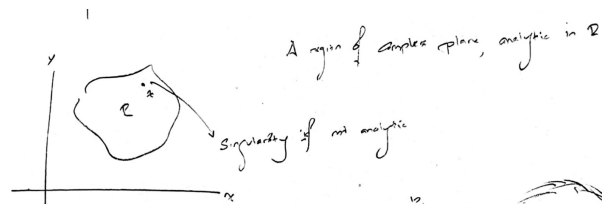 A region of complex plane, analytic in R
y
R
z
Singularity if not analytic
x